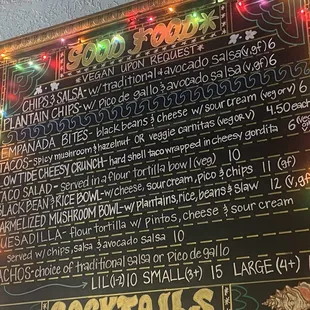 GOOD FOOD
*VEGAN UPON REQUEST*
CHIPS & SALSA - w/ traditional & avocado salsa (v,gf) 6
PLANTAIN CHIPS - w/ pico de gallo & avocado salsa (v,gf) 6
EMPANADA BITES - black beans & cheese w/ sour cream (veg or v) 6
TACOS - spicy mushroom & hazelnut OR veggie carnitas (veg or v) 4.50 each
LOW TIDE CHEESY CRUNCH - hard shell taco wrapped in cheesy gordita 6
TACO SALAD - served in a flour tortilla bowl (veg) 10
BLACK BEAN & RICE BOWL - w/ cheese, sour cream, pico & chips 11 (gf)
CARMELIZED MUSHROOM BOWL - w/ Plantains, rice, beans & slaw 12 (v,gf
QUESADILLA - flour tortilla w/ pintos, cheese & sour cream
served w/ chips, salsa & avocado salsa 10
NACHOS - choice of traditional salsa or Pico de gallo
LIL (1-2) 10 SMALL (3+) 15 LARGE (4+)
COCKTAILS